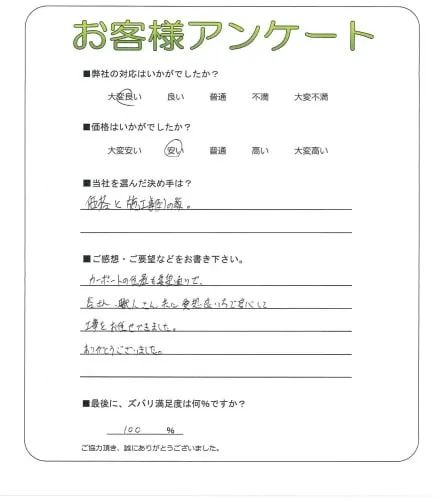 お客様アンケート
■弊社の対応はいかがでしたか？
大変良い 良い 普通 不満 大変不満
■価格はいかがでしたか？
大変安い 安い 普通 高い 大変高い
■当社を選んだ決め手は？
価格と施工事例の数。
■ご感想・ご要望などをお書き下さい。
カーポートの位置も希望通りで、
職人さん 安心して
工事をお任せできました。
ありがとうございました。
■最後に、ズバリ満足度は何％ですか？
100 ％
ご協力頂き、誠にありがとうございました。